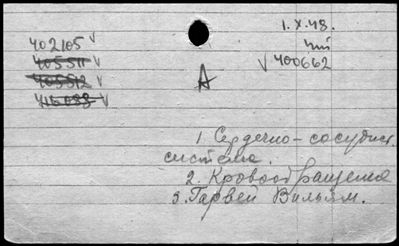 1.X.48.
402105 √
405511 √
√ 400662
405512 √
416088 √
А
1. Сердечно-сосудист.
система.
2. Кровообращение
3. Гарвей Вильям.